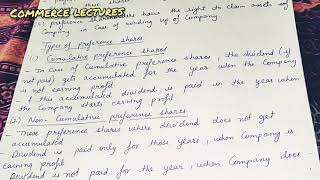 COMMERCE LECTURES
these shares
preference shares have the right to claim assets of
Company in Case of winding up of Company.
Types of preference shares
(1) Cumulative preference shares
- In Case of Cumulative preference shares, the dividend (if
not paid) gets accumulated for the year when the Company
is not earning profit
& this accumulated dividend is paid in the year when
the Company starts earning profit
(2) Non-Cumulative preference shares
- Those preference shares where dividend does not get
accumulated
- Dividend is paid only for those years, when Company is
earning profit
Dividend is not paid for the year, when Company does